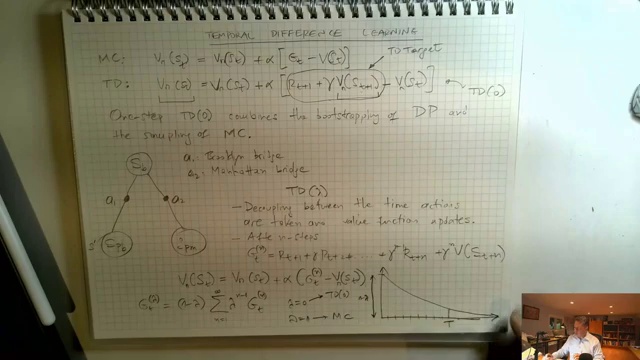 TEMPORAL DIFFERENCE LEARNING
MC: Vπ(St) = Vπ(St) + α [Gt − V(St)]
TD Target
TD: Vπ(St) = Vπ(St) + α [Rt+1 + γ Vπ(St+1) − Vπ(St)]
TD(0)
One-step TD(0) combines the bootstrapping of DP and
the sampling of MC.
S0
a1: Brooklyn bridge
a2: Manhattan bridge
a1
a2
S'
TD(λ)
– Decoupling between the time actions
are taken and value function updates.
– After n-steps
Gt(n) = Rt+1 + γ Rt+2 + ... + γ Rt+n + γn V(St+n)
Vπ(St) = Vπ(St) + α (Gt(n) − Vπ(St))
Gt(λ) = (1−λ) Σ λn−1 Gt(n)
n=1
λ=0 → TD(0)
λ=1 → MC
1-λ
T